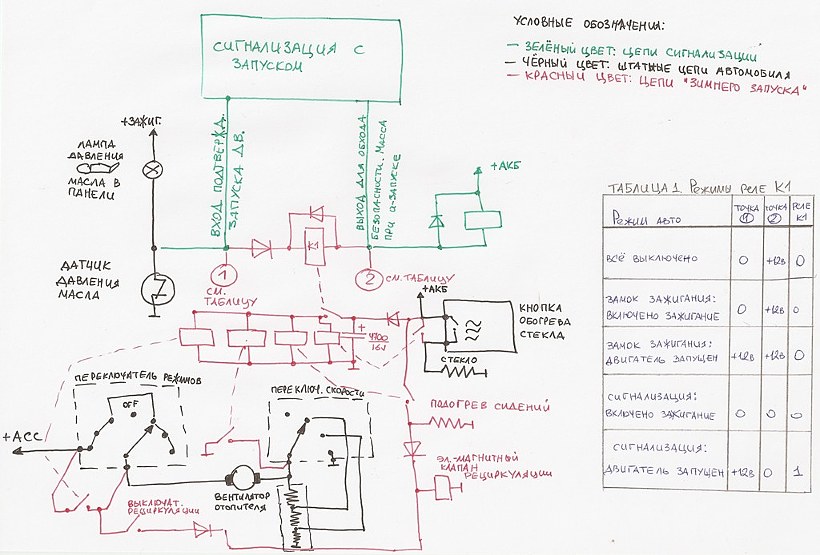 СИГНАЛИЗАЦИЯ С
ЗАПУСКОМ
УСЛОВНЫЕ ОБОЗНАЧЕНИЯ:
— ЗЕЛЁНЫЙ ЦВЕТ: ЦЕПИ СИГНАЛИЗАЦИИ
— ЧЁРНЫЙ ЦВЕТ: ШТАТНЫЕ ЦЕПИ АВТОМОБИЛЯ
— КРАСНЫЙ ЦВЕТ: ЦЕПИ "ЗИМНЕГО ЗАПУСКА"
+ЗАЖИГ.
ЛАМПА
ДАВЛЕНИЯ
МАСЛА В
ПАНЕЛИ
ВХОД ПОДТВЕРЖД.
ЗАПУСКА ДВ.
ВЫХОД ДЛЯ ОБХОДА
БЕЗОПАСНОСТИ. МАССА
ПРИ а-ЗАПУСКЕ
+АКБ
К1
ДАТЧИК
ДАВЛЕНИЯ
МАСЛА
1
СМ.
ТАБЛИЦУ
2
СМ. ТАБЛИЦУ
+АКБ
КНОПКА
ОБОГРЕВА
СТЕКЛА
+
4700
16V
СТЕКЛО
ПЕРЕКЛЮЧАТЕЛЬ РЕЖИМОВ
OFF
ПЕРЕКЛЮЧ. СКОРОСТИ
+АСС
ПОДОГРЕВ СИДЕНИЙ
ЭЛ.-МАГНИТНЫЙ
КЛАПАН
РЕЦИРКУЛЯЦИИ
ВЕНТИЛЯТОР
ОТОПИТЕЛЯ
ВЫКЛЮЧАТ.
РЕЦИРКУЛЯЦИИ
ТАБЛИЦА 1. Режимы реле К1
Режим авто
ТОЧКА 1
ТОЧКА 2
РЕЛЕ К1
ВСЁ ВЫКЛЮЧЕНО 0 +12в 0
ЗАМОК ЗАЖИГАНИЯ:
ВКЛЮЧЕНО ЗАЖИГАНИЕ 0 +12в 0
ЗАМОК ЗАЖИГАНИЯ:
ДВИГАТЕЛЬ ЗАПУЩЕН +12в +12в 0
СИГНАЛИЗАЦИЯ:
ВКЛЮЧЕНО ЗАЖИГАНИЕ 0 0 0
СИГНАЛИЗАЦИЯ:
ДВИГАТЕЛЬ ЗАПУЩЕН +12в 0 1